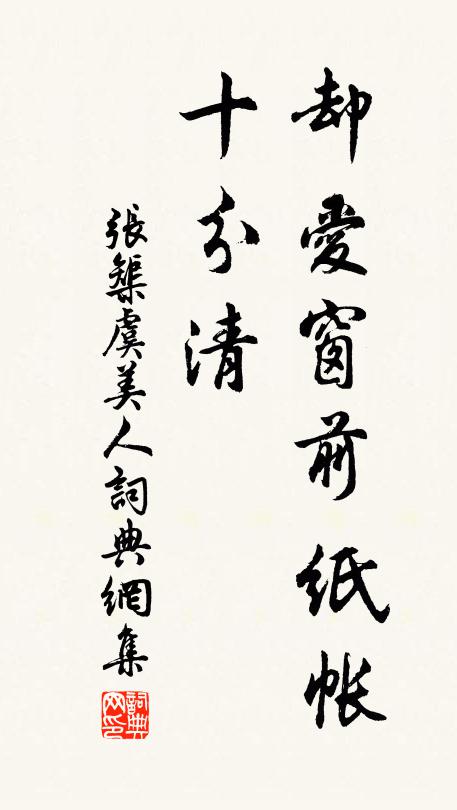 却愛窗前紙帳
十分清
張榘虞美人詞典網集
詞典網印